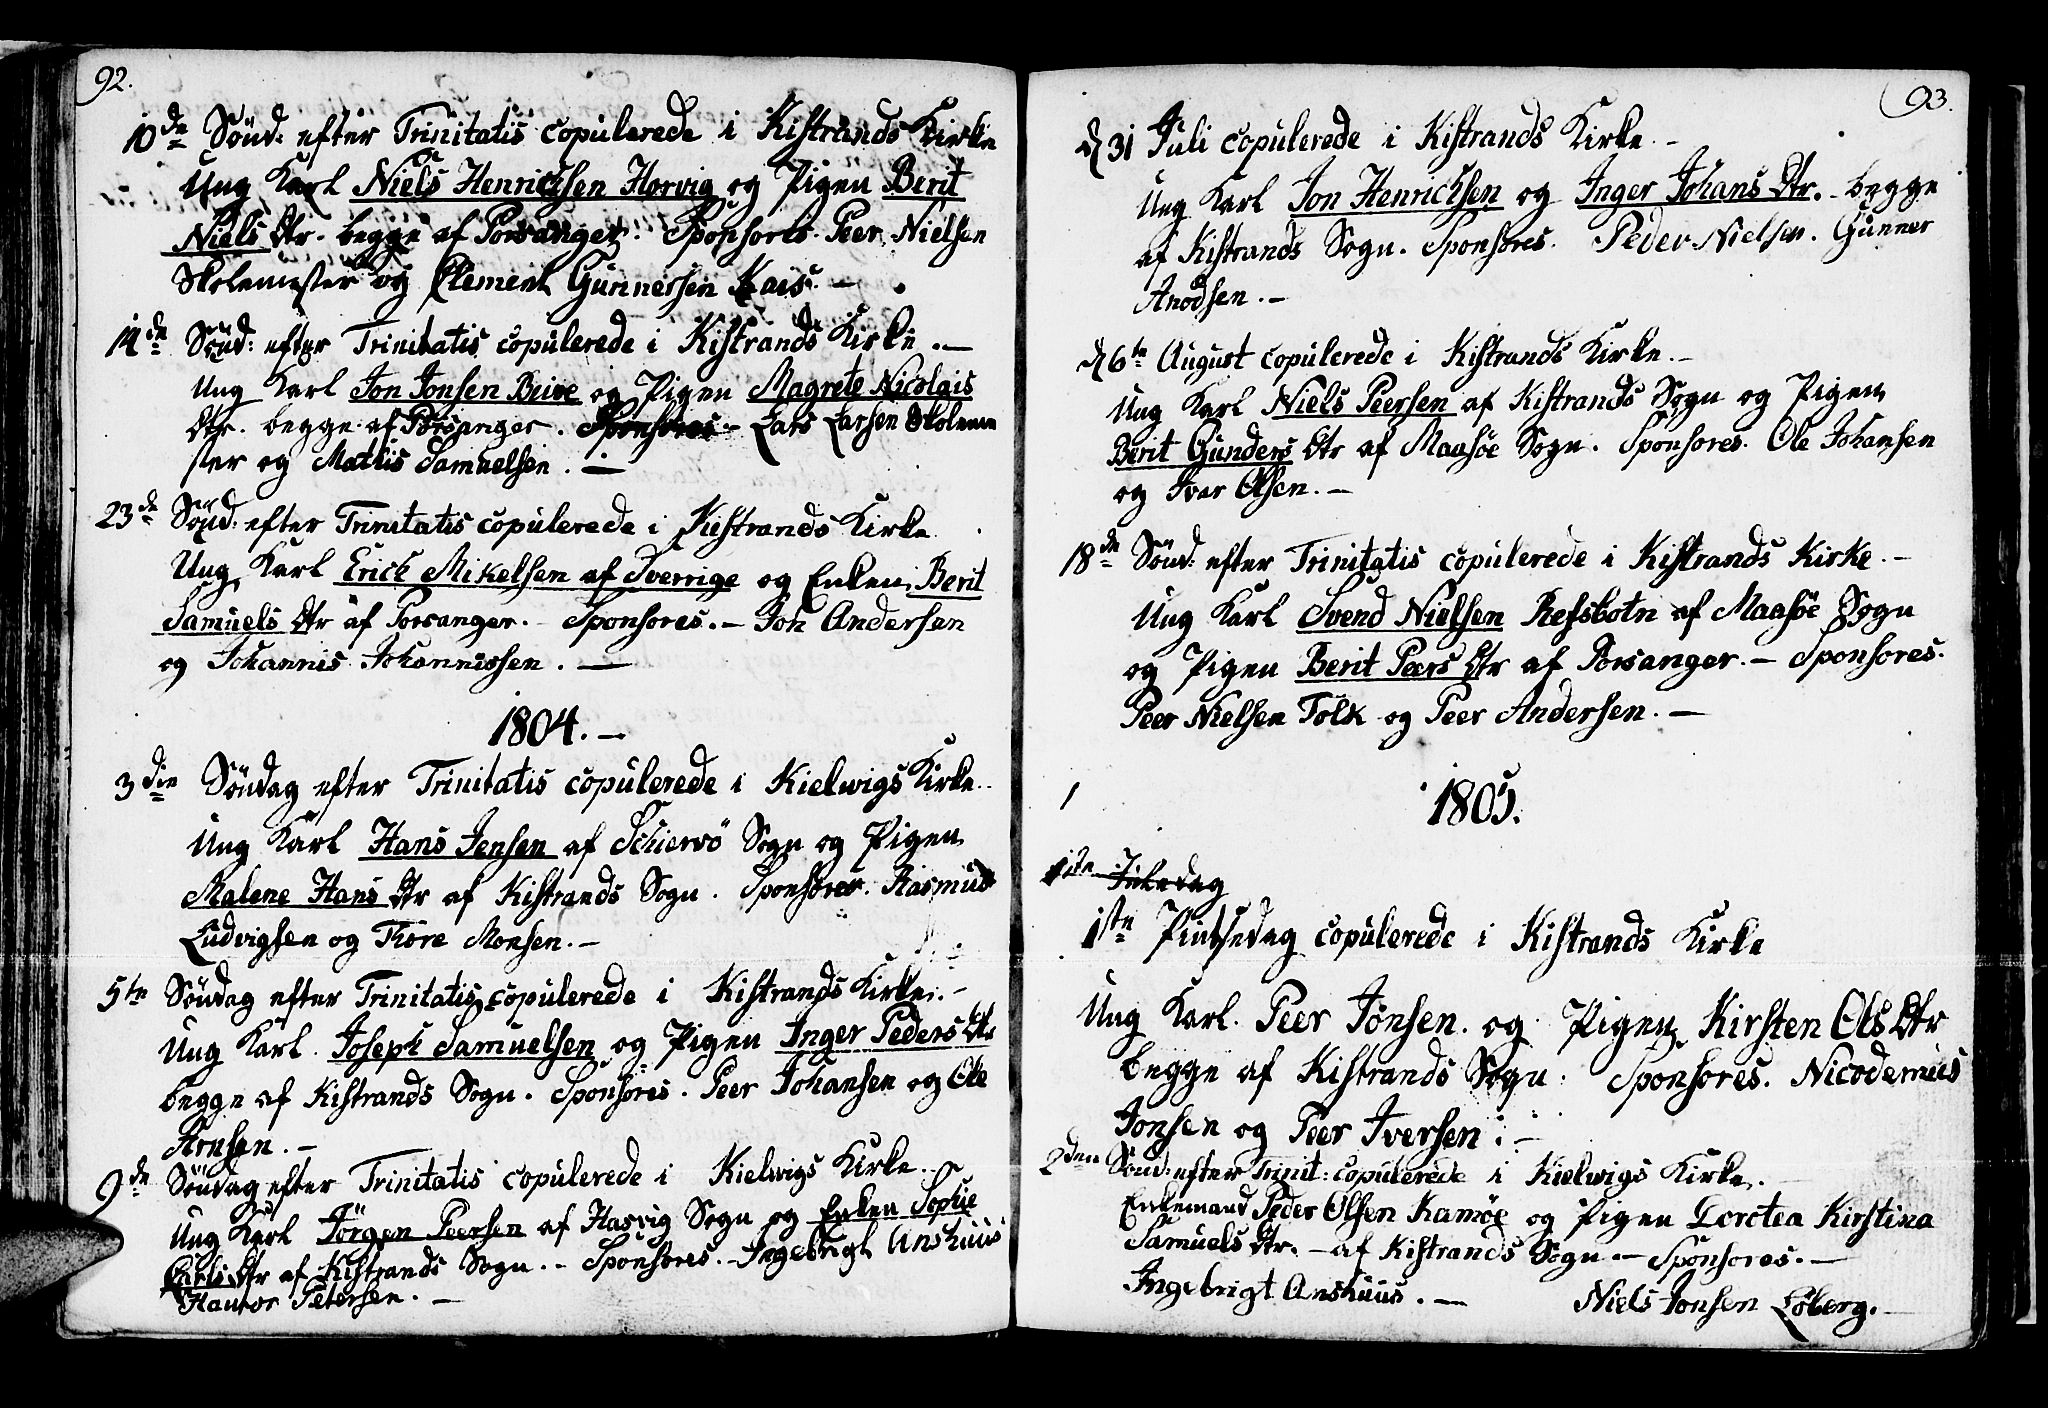 92.
10de Sönd: efter Trinitatis copulerede i Kistrands Kirke
Ung Karl Niels Henrichsen Horvig og Pigen Berit
Niels Dtr. begge af Porsanger. Sponsores. Peer Nielsen
Skolemester og Clement Gunnersen Kais. —
14de Sönd: efter Trinitatis copulerede i Kistrands Kirke. —
Ung Karl Jon Jonsen Beive og Pigen Magrete Nicolais
Dtr. begge af Porsanger. Sponsores — Lars Larsen Skoleme
ster og Mathis Samuelsen. —
23de Sönd: efter Trinitatis copulerede i Kistrands Kirke
Ung Karl Erick Mikelsen af Sverrige og Enken Berit
Samuels Dtr af Porsanger. — Sponsores. — Joh Andersen
og Johannis Johannissen. —
1804. —
3die Söndag efter Trinitatis copulerede i Kielwigs Kirke.
Ung Karl Hans Jensen af Schiervö Sogn og Pigen
Malene Hans Dtr af Kistrands Sogn. Sponsores. Rasmus
Ludvigsen og Thore Monsen. —
5te Söndag efter Trinitatis copulerede i Kistrands Kirke. —
Ung Karl Joseph Samuelsen og Pigen Inger Peders Dtr
begge af Kistrands Sogn. Sponsores. Peer Johansen og Ole
Aronsen. —
9de Söndag efter Trinitatis copulerede i Kielwigs Kirke.
Ung Karl Jörgen Peersen af Hasvig Sogn og Enken Sophie
Carls Dtr af Kistrands Sogn. — Sponsores. — Ingebrigt Anshuus
Petersen. —
93.
d 31 Juli copulerede i Kistrands Kirke. —
Ung Karl Jon Henrichsen og Inger Johans Dtr. begge
af Kistrands Sogn. Sponsores. Peder Nielsen. Gunner
Anodsen. —
d 6te August copulerede i Kistrands Kirke. —
Ung Karl Niels Peersen af Kistrands Sogn og Pigen
Berit Gunders Dtr af Maasöe Sogn. Sponsores. Ole Johansen
og Ivar Olsen. —
18de Sönd: efter Trinitatis copulerede i Kistrands Kirke. —
Ung Karl Svend Nielsen Refsbotn af Maasöe Sogn
og Pigen Berit Peers Dtr af Porsanger. — Sponsores.
Peer Nielsen Tolk og Peer Andersen. —
1805.
1ste Juledag
1ste Pintsedag copulerede i Kistrands Kirke
Ung Karl. Peer Jonsen. og Pigen Kirsten Ols Dtr
begge af Kistrands Sogn. Sponsores. Nicodemus
Jonsen og Peer Iversen. —
2den Sönd: efter Trinit: copulerede i Kielwigs Kirke. —
Enkemand Peder Olsen Kamöe og Pigen Dorotea Kirstina
Samuels Dtr. — af Kistrands Sogn. — Sponsores. —
Ingebrigt Anshuus. — Niels Jonsen Löberg. —